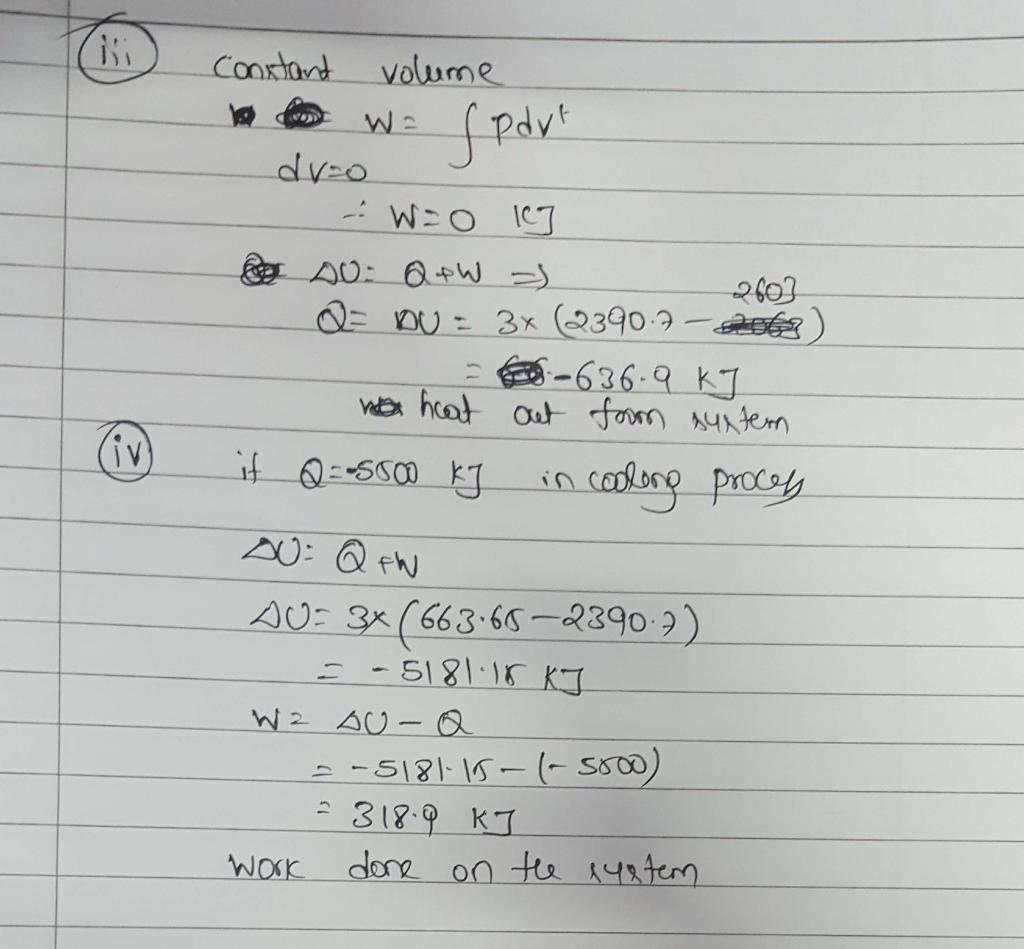 iii Constant volume
W = ∫ pdv
dv=0
∴ W=0 KJ
ΔU= Q+W ⇒
2603
Q= ΔU = 3x (2390.7 - )
= -636.9 KJ
heat out from system
iv if Q=-5500 KJ in cooling process
ΔU= Q+W
ΔU= 3x (663.65-2390.7)
= -5181.15 KJ
W= ΔU-Q
= -5181.15-(-5500)
= 318.9 KJ
Work done on the system